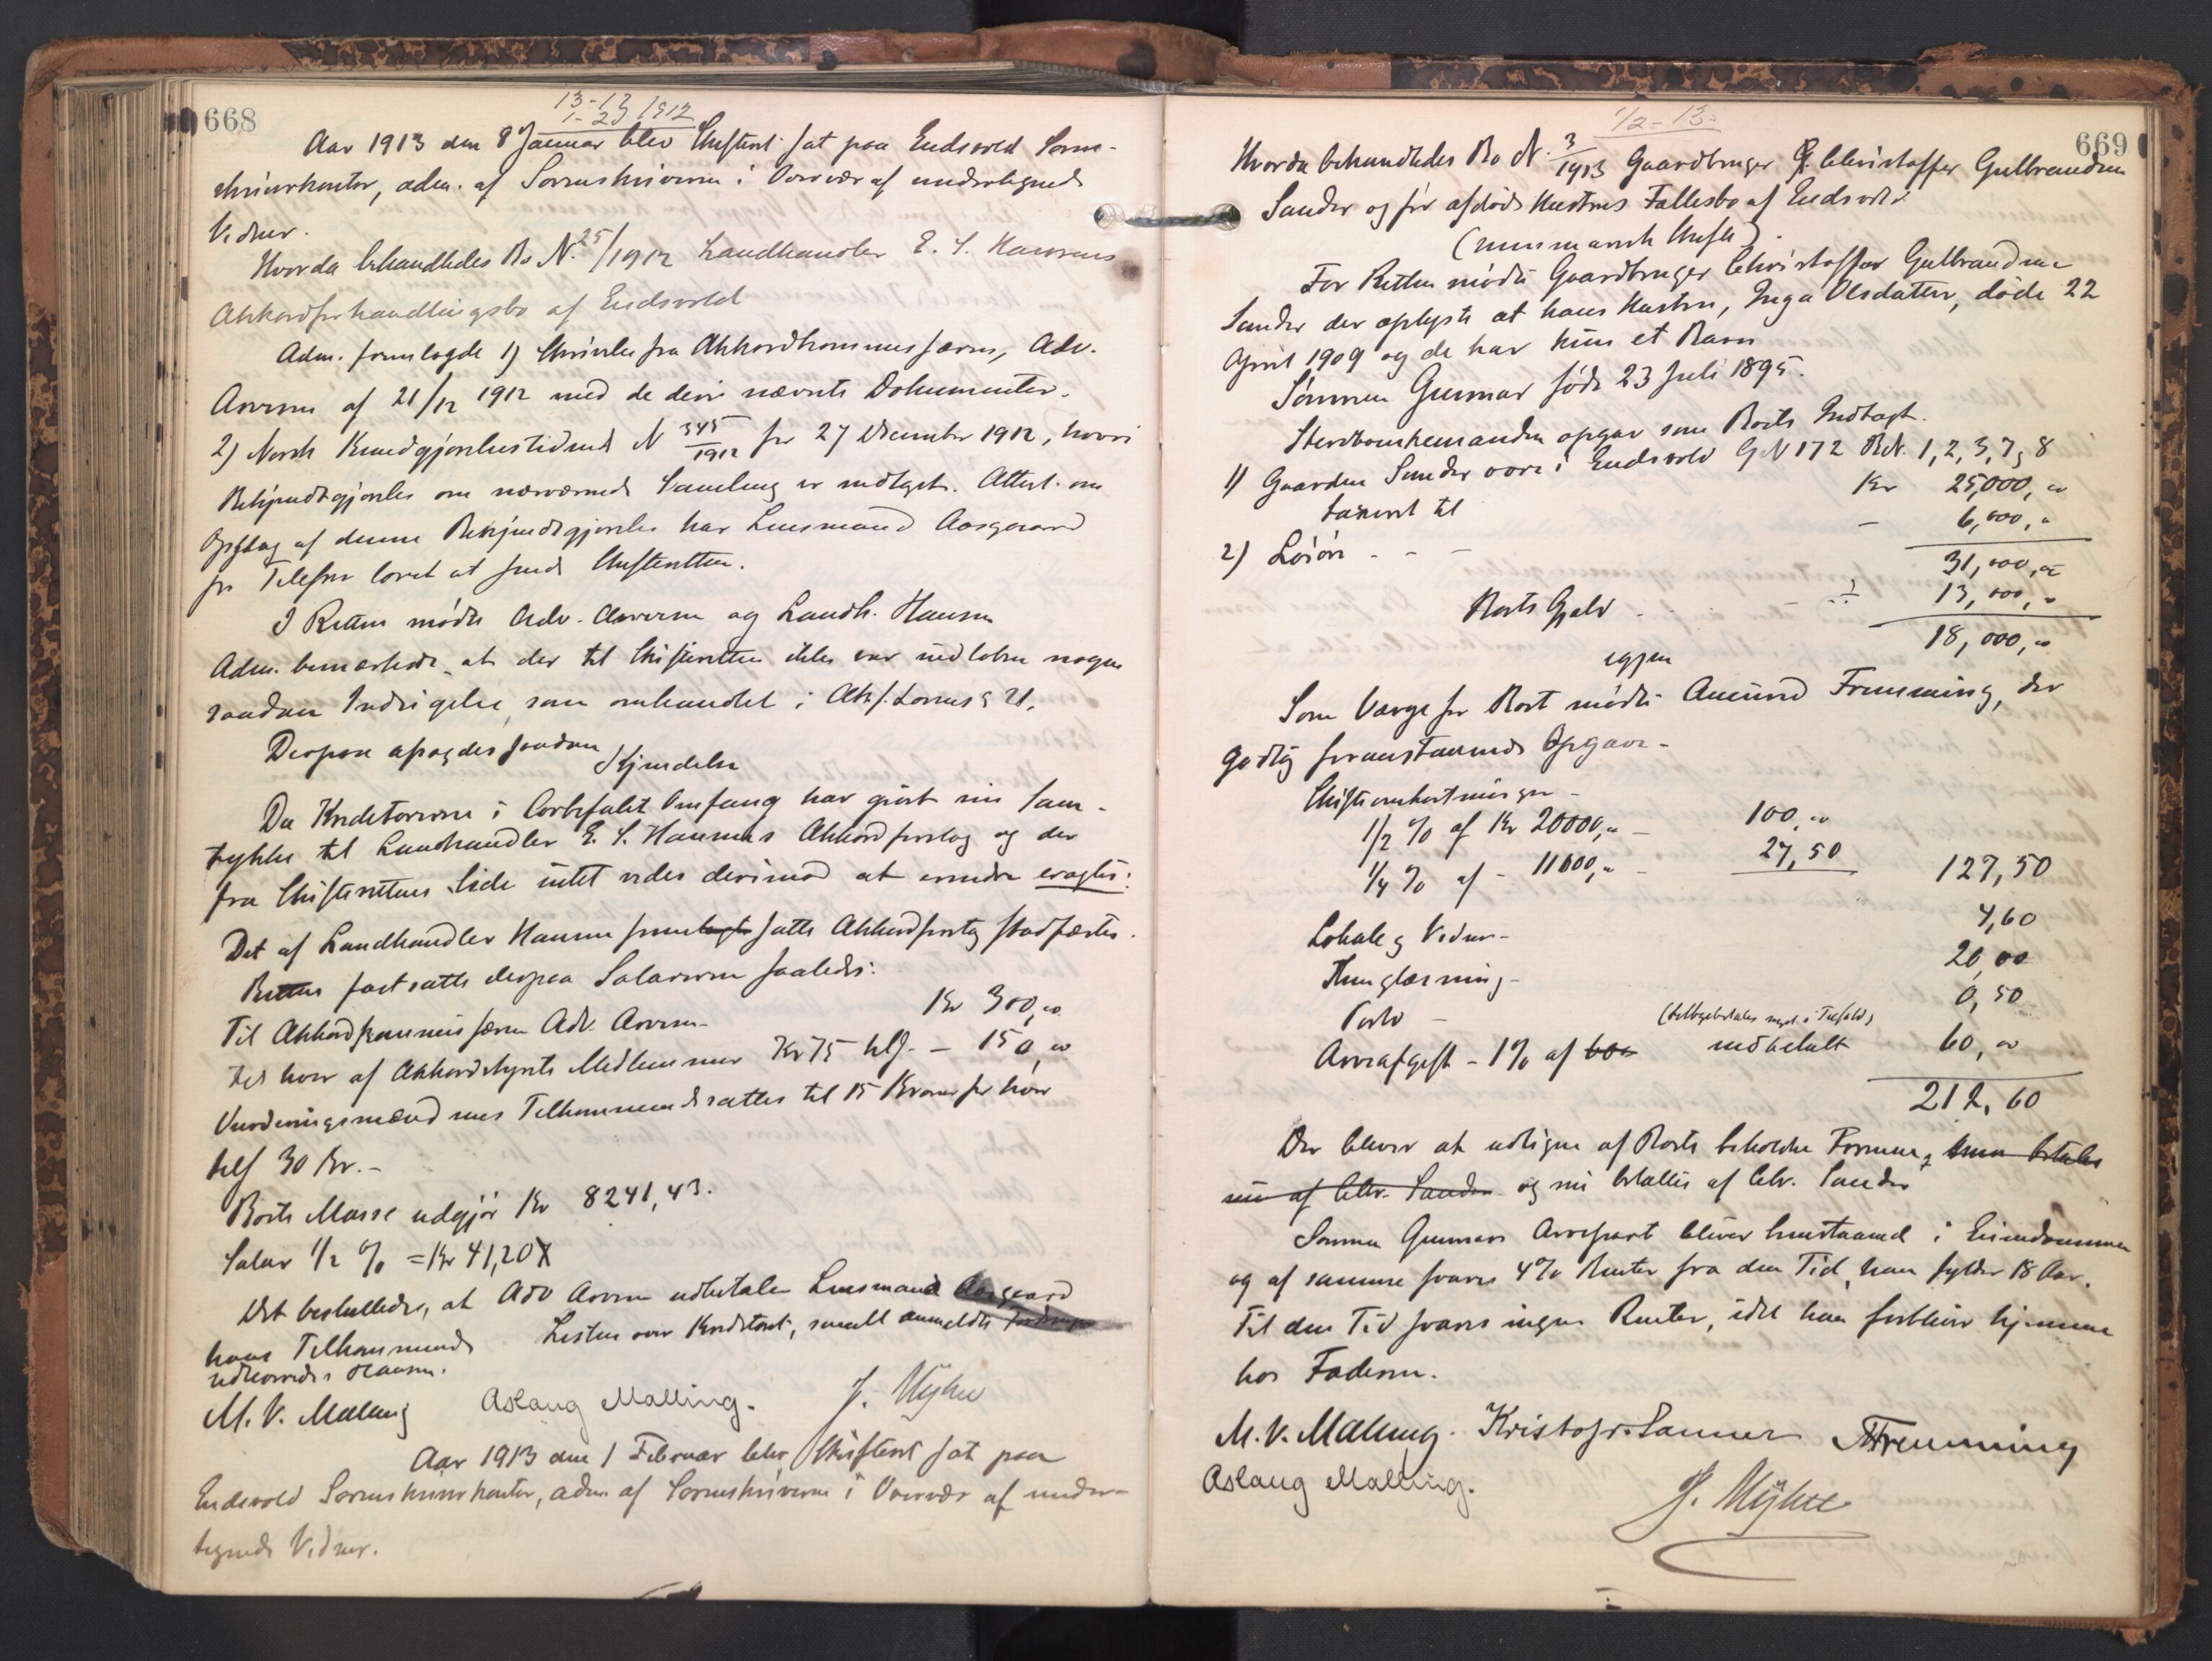 668
13-12 1912
1-23
Aar 1913 den 8 Januar blev Skifteret sat paa Eidsvold Soren-
skriverkontor, adm. af Sorenskriveren i Overvær af undertegnede
Vidner.
Hvorda behandledes Bo N. 25/1912 Landhandler E. S. Hansens
Akkordforhandlingsbo af Eidsvold
Adm. fremlagde 1) Skrivelse fra Akkordkommissæren, Adv.
Arvesen af 21/12 1912 med de deri nævnte Dokumenter.
2) Norsk Kundgjørelsestidende N 345/1912 for 27 December 1912, hvori
Bekjendtgjørelse om nærværende Samling er indtaget. Attest om
Opslag af denne Bekjendtgjørelse har Lensmand Aasgaard
pr Telefon lovet at sende Skifteretten.
I Retten mødte Adv. Arvesen og Landh. Hansen
Adm. bemærkede at der til Skifteretten ikke var indløben nogen
saadan Indsigelse, som omhandlet i Akk.lovens § 21.
Derpaa afsagdes saadan
Kjendelse
Da Kreditorerne i lovbefalet Omfang har givet sin Sam-
tykke til Landhandler E. S. Hansens Akkordforslag og der
fra Skifterettens Side intet vides derimod at erindre eragtes:
Det af Landhandler Hansen fremlagt satte Akkordforslag stadfæstes.
Retten fastsatte derpaa Salærerne saaledes:
Til Akkordkommissæren Adv. Arvesen Kr 300,00
til hver af Akkordstyrets Medlemmer Kr 75 tils. – 150,00
Vurderingsmændenes Tilkommende sættes til 15 Kroner for hver
tils 30 Kr.-
Boets Masse udgjør Kr 8241,43.
Salær 1/2 % = Kr 41,20
Det besluttedes, at Adv Arvesen udbetaler Lensmand Aasgaard
hans Tilkommende Listen over Kreditorer, samt anmeldte Fordringer
udleveredes Hansen.
M. V. Malling Aslaug Malling. J. Myhre
Aar 1913 den 1 Februar blev Skifteret sat paa
Eidsvold Sorenskriverkontor, adm af Sorenskriveren i Overvær af under-
tegnede Vidner.
1/2-13
669
Hvorda behandledes Bo N. 3/1913 Gaardbruger Christoffer Gulbrandsen
Sander og før afdøde Hustrus Fællesbo af Eidsvold
(mindelig Skifte).
For Retten mødte Gaardbruger Christoffer Gulbrandsen
Sander der oplyste at hans Hustru, Inga Olsdatter, døde 22
April 1909 og de har kun et Barn
Sønnen Gunnar født 23 Juli 1895.
Stervboenkemanden opgav som Boets Indtægt.
1) Gaarden Sander øvre i Eidsvold GN 172 BN. 1, 2, 3, 7, 8
taxeret til Kr 25,000,00
2) Løsøre - - - 6,000,00
31,000,00
Boets Gjæld - ÷ 13,000,00
18,000,00
igjen
Som Værge for Boet mødte Amund Fremming, der
godtog foranstaaende Opgave-
Skifteomkostninger -
1/2 % af Kr 20000,00 - 100,00
1/4 % af - 11000,00 - 27,50 127,50
Lokale og Vidner- 4,60
Thinglæsning- 20,00
Porto - 0,50
(tilbagebetales) 
Arveafgift - 1% af indbetalt 60,00
212,60
Der bliver at udligne af Boets beholdne Formue, som betales
nu af Chr. Sander og nu betaltes af Chr. Sander
Sønnen Gunnars Arvepart bliver henstaaende i Eiendommen
og af samme svares 4% Renter fra den Tid han fylder 18 Aar.
Til den Tid svares ingen Renter, idet han forbliver hjemme
hos Faderen.
M. V. Malling. Kristofr. Sanner AFremming
Aslaug Malling. J. Myhre